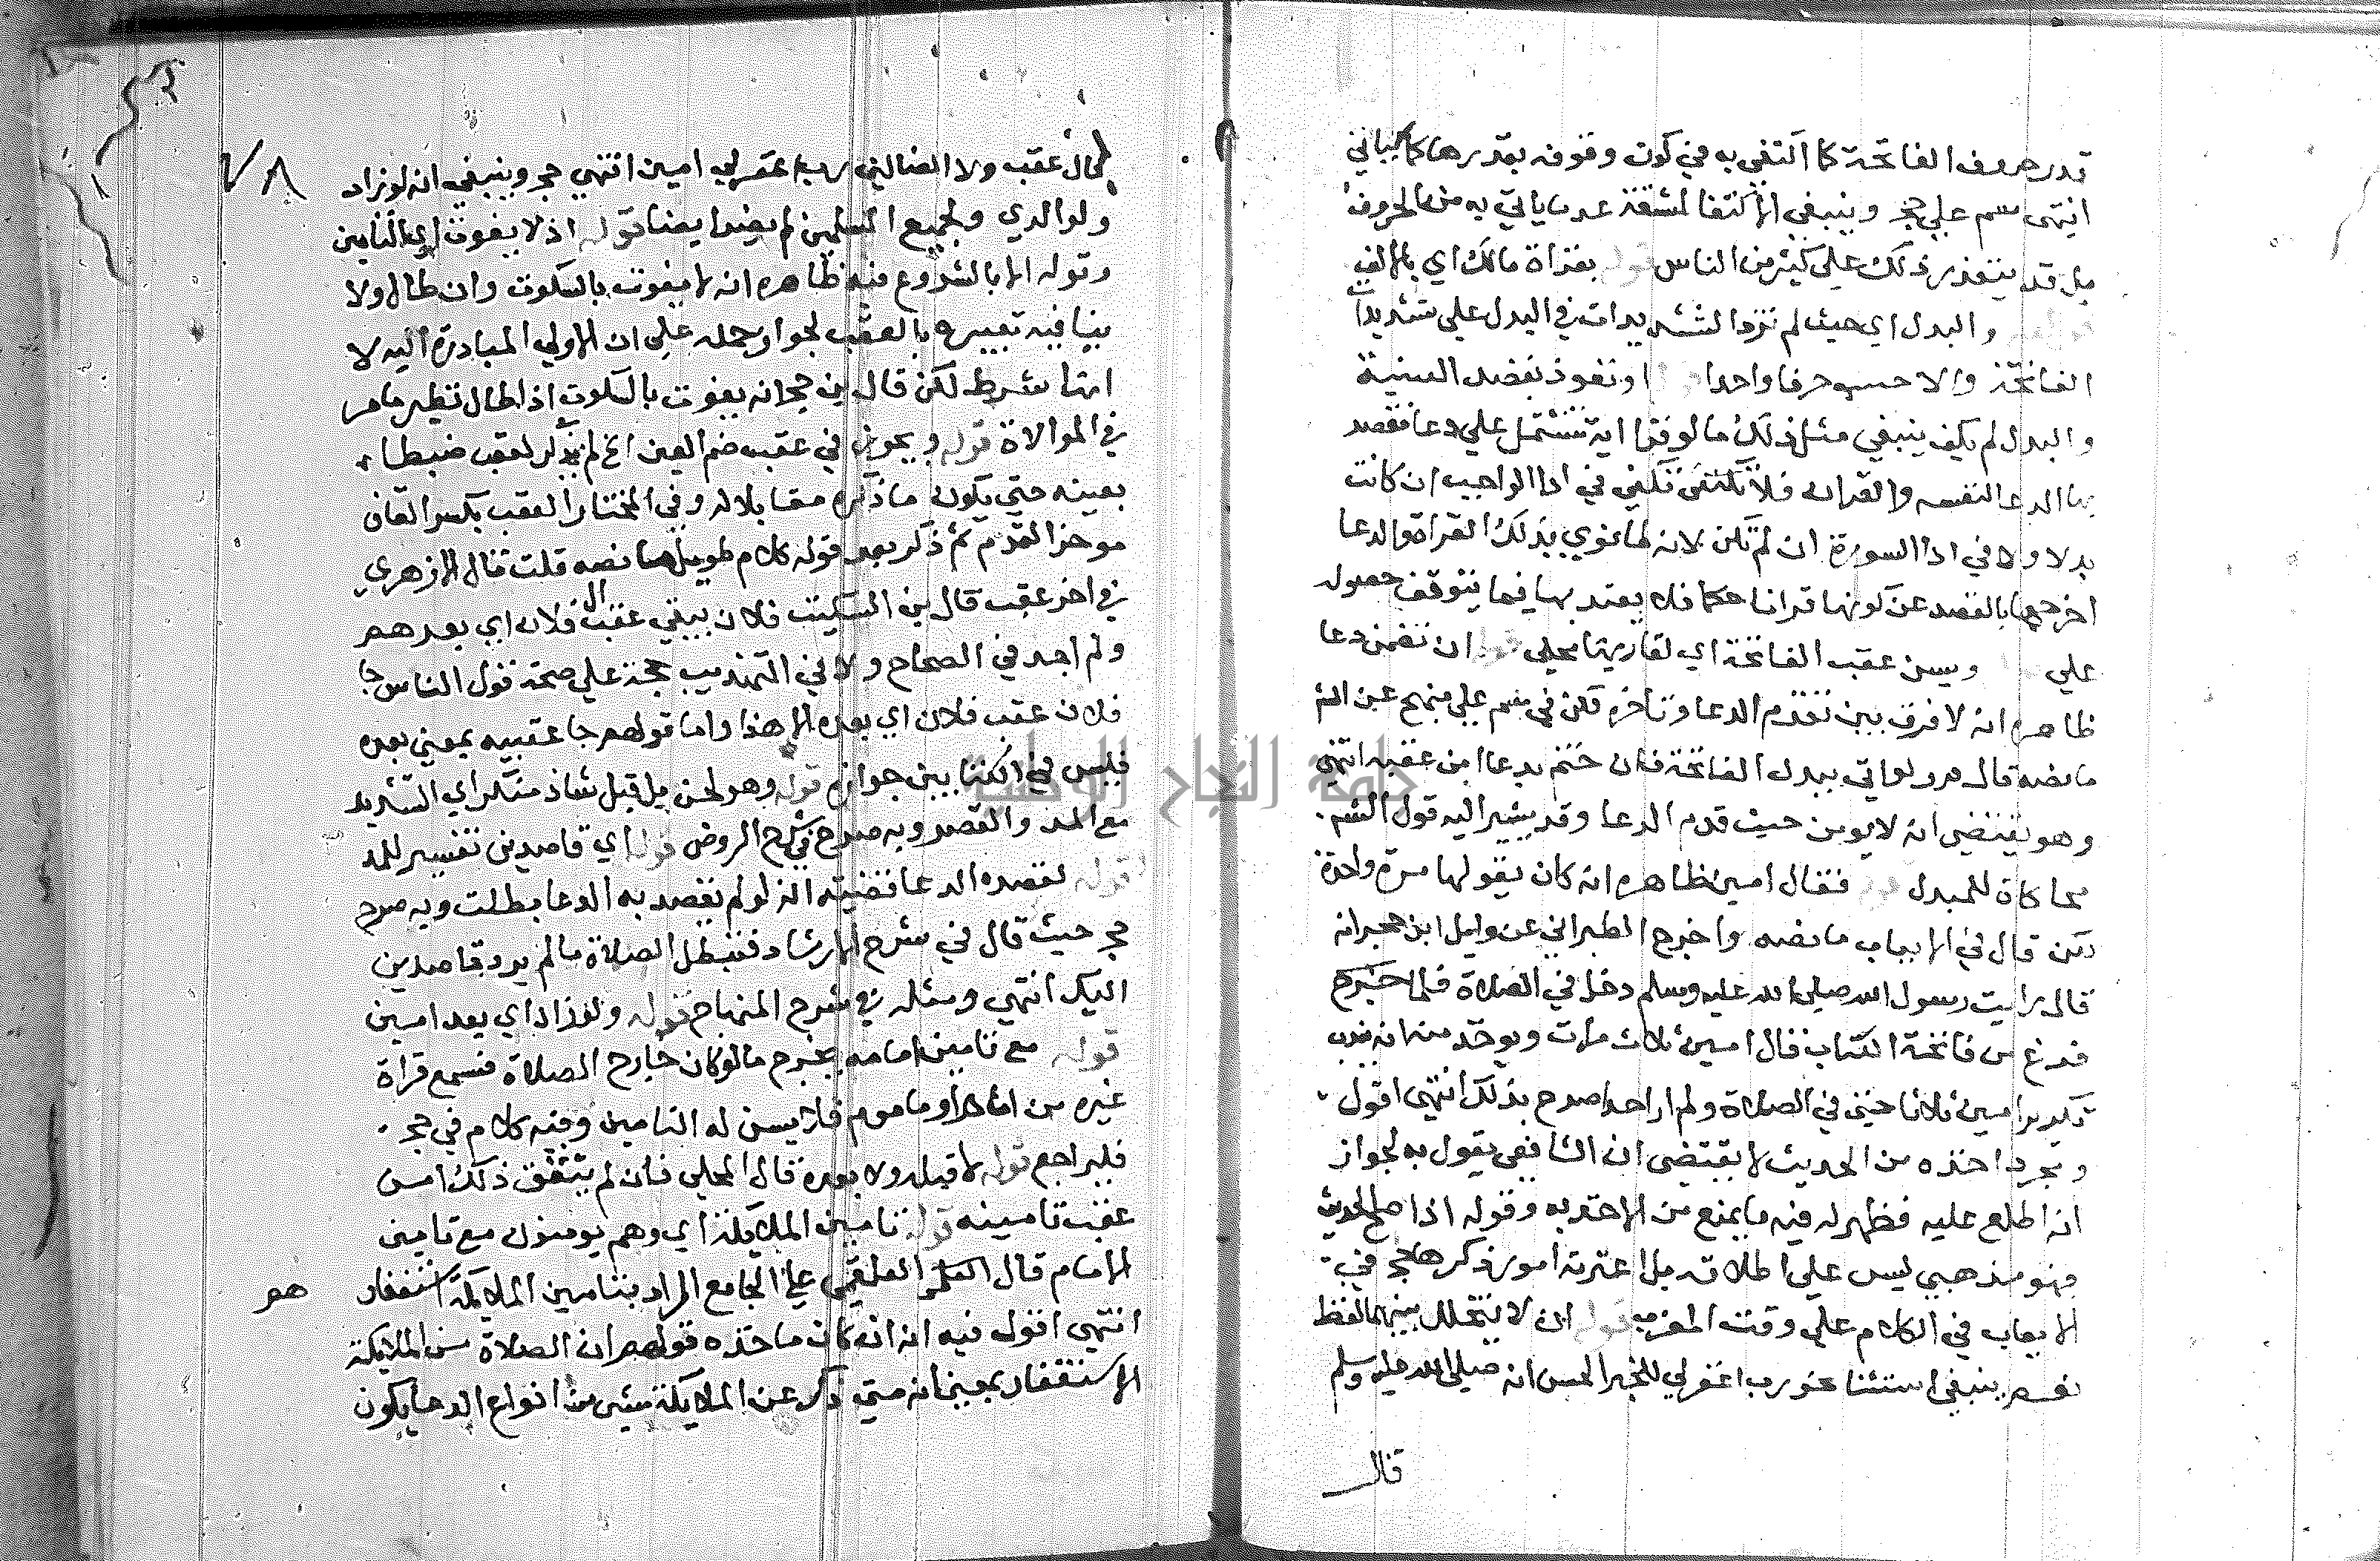 قدر حروف الفاتحة كما اكتفي به في كون وقوفه بقدرها كما يأتي
انتهى سم علي حجر وينبغي الاكتفا لمشقة عد ما ياتي به من الحروف
بل قد يتعذر ذلك علي كثير من الناس قوله بقراة مالك اي بالالف
قوله والبدل اي حيث لم تزد التشديدات في البدل علي تشديدات
الفاتحة والا حسب حرفا واحدا او تعوذ بقصد السنية
والبدل لم يكف ينبغي مثل ذلك ما لو قرا اية تشتمل علي دعا فقصد
بها الدعا لنفسه والقران فلا تكفي في ادا الواجب ان كانت
بدلا ولا في ادا السورة ان لم تكن لانه لما نوي بذلك القراة والدعا
اخرجها بالقصد عن كونها قرانا حكما فلا يعتد بها فيما يتوقف حصوله
علي ويسن عقب الفاتحة اي لقاريها محلي قوله ان تضمن دعا
ظاهره انه لا فرق بين تقدم الدعا وتاخره لكن في سم علي منهج عن الشم
ما نصه قال مر ولو اتي ببدل الفاتحة فان ختم بدعا امن عقبه انتهي
وهو يقتضي انه لا يومن حيث قدم الدعا وقد يشير اليه قول الشم
محاكاة للمبدل قوله فقال امين ظاهره انه كان يقولها مرة واحدة
لكن قال في الايعاب ما نصه واخرج الطبراني عن وايل ابن حجر انه
قال رايت رسول الله صلي الله عليه وسلم دخل في الصلاة فلما
فرغ من فاتحة الكتاب قال امين ثلاث مرات ويوخذ منه انه يندب
تكرير امين ثلاثا حتي في الصلاة ولم ار احدا صرح بذلك انتهي اقول
ومجرد اخذه من الحديث لا يقتضي ان الشافعي يقول به لجواز
انه اطلع عليه فظهر له فيه ما يمنع من الاخذ به وقوله اذا صح الحديث
فهو مذهبي ليس علي اطلاقه بل اعتربه امور ذكرها حجر في
الايعاب في الكلام علي وقت المغرب قوله ان لا يتخلل بينهما لفظ
نعم ينبغي استثنا نحو رب اغفر لي للخبر الحسن انه صلي الله عليه وسلم
قال
٧٨
قال عقب ولا الضالين رب اغفر لي امين انتهي حجر وينبغي انه لو زاد
ولوالدي ولجميع المسلمين لم يضر ايضا قوله اذ لا يفوت اي التامين
وقوله الا بالشروع فيه ظاهره انه لا يفوت بالسكوت وان طال ولا
ينافيه تعبيره بالعقب لجواز حمله علي ان الاولي المبادرة اليه لا
انها شرط لكن قال بن حجر انه يفوت بالسكوت اذا طال نظير ما مر
في الموالاة قوله ويجوز في عقب ضم العين الخ لم يذكر لعقب ضبطا
بعينه حتي يكون ما ذكره مقابلا له وفي المختار العقب بكسر القاف
موخر القدم ثم ذكر بعد قوله كلام طويل ما نصه قلت قال الازهري
في اخر عقب قال بن السكيت فلان يبقي عقب ال فلان اي بعدهم
ولم اجد في الصحاح ولا في التهذيب حجة علي صحة قول الناس جا
فلان عقب فلان اي بعده الا هذا واما قولهم جا عقيبه بمعني بعده
فليس في الكتابين جوازه قوله وهو لحن بل قيل شاذ منكر اي التشديد
مع المد والقصر وبه صرح في شرح الروض قوله اي قاصدين تفسير للمد
قوله لقصده الدعا قضيته انه لو لم يقصد به الدعا بطلت وبه صرح
حجر حيث قال في شرح الارشاد فتبطل الصلاة ما لم يرد قاصدين
اليك انتهي ومثله في شرح المنهاج قوله ولو زاد اي بعد امين
قوله مع تامين امامه يخرج ما لو كان خارج الصلاة فسمع قراة
غيره من امام او ماموم فلا يسن له التامين وفيه كلام في حجر
فليراجع قوله لا قبله ولا بعده قال المحلي فان لم يتفق ذلك امن
عقب تامينه قوله تامين الملايكة اي وهم يومنون مع تامين
الامام قال العلقمي علي الجامع المراد بتامين الملايكة استغفارهم
انتهي اقول فيه انه ان كان ماخذه قولهم ان الصلاة من الملايكة
الاستغفار بمعني انه متي ذكر عن الملايكة شي من انواع الدعا يكون
جامعة النجاح الوطنية